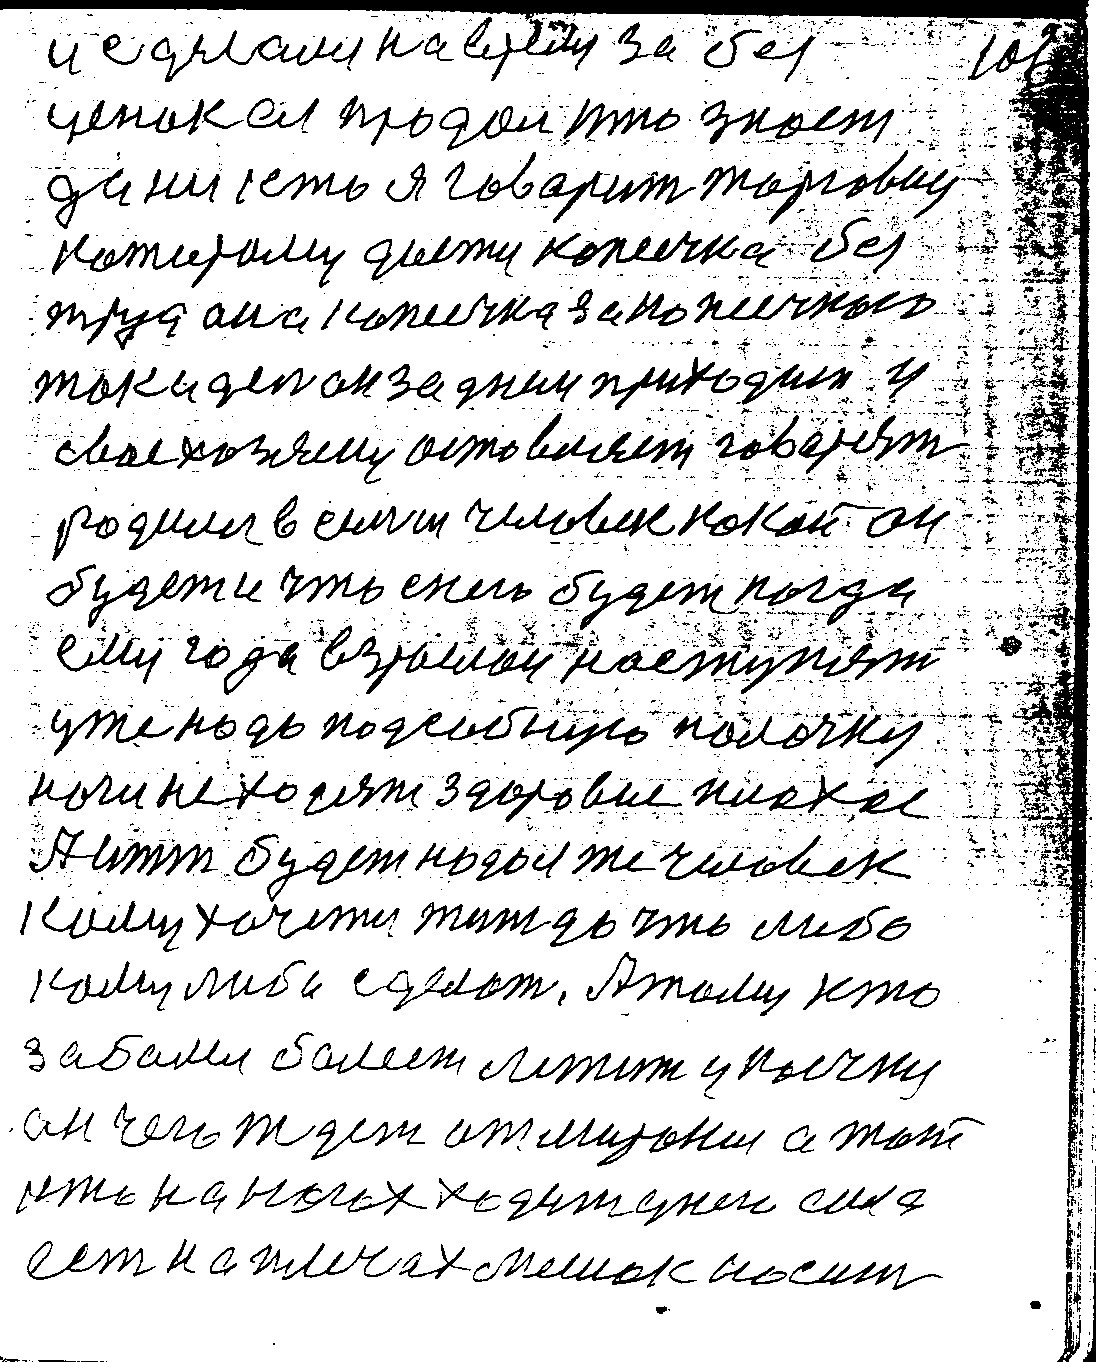 и сделали на время за без 103
ценок ел продол кто знает
да ни есть я говарит торговцу
которому дети копеичка без
труд она копеичка за копеичкою
така ден он за днем приходит и
свое хозяену оставляет говарят
родился в семи человек какой он
будет и что снего будет когда
ему года взрослои наступят
уже надо подсобную полочку
ноги не ходят здоровие плохое
А етт будет надоел же человек
кому хочети тит до что либо
кому либа сделат. А тому кто
заболел болеет лежит у коечки
он чего ждет от медконы а тот
кто на ногах ходит у него сила
ест на плечах мешок носит